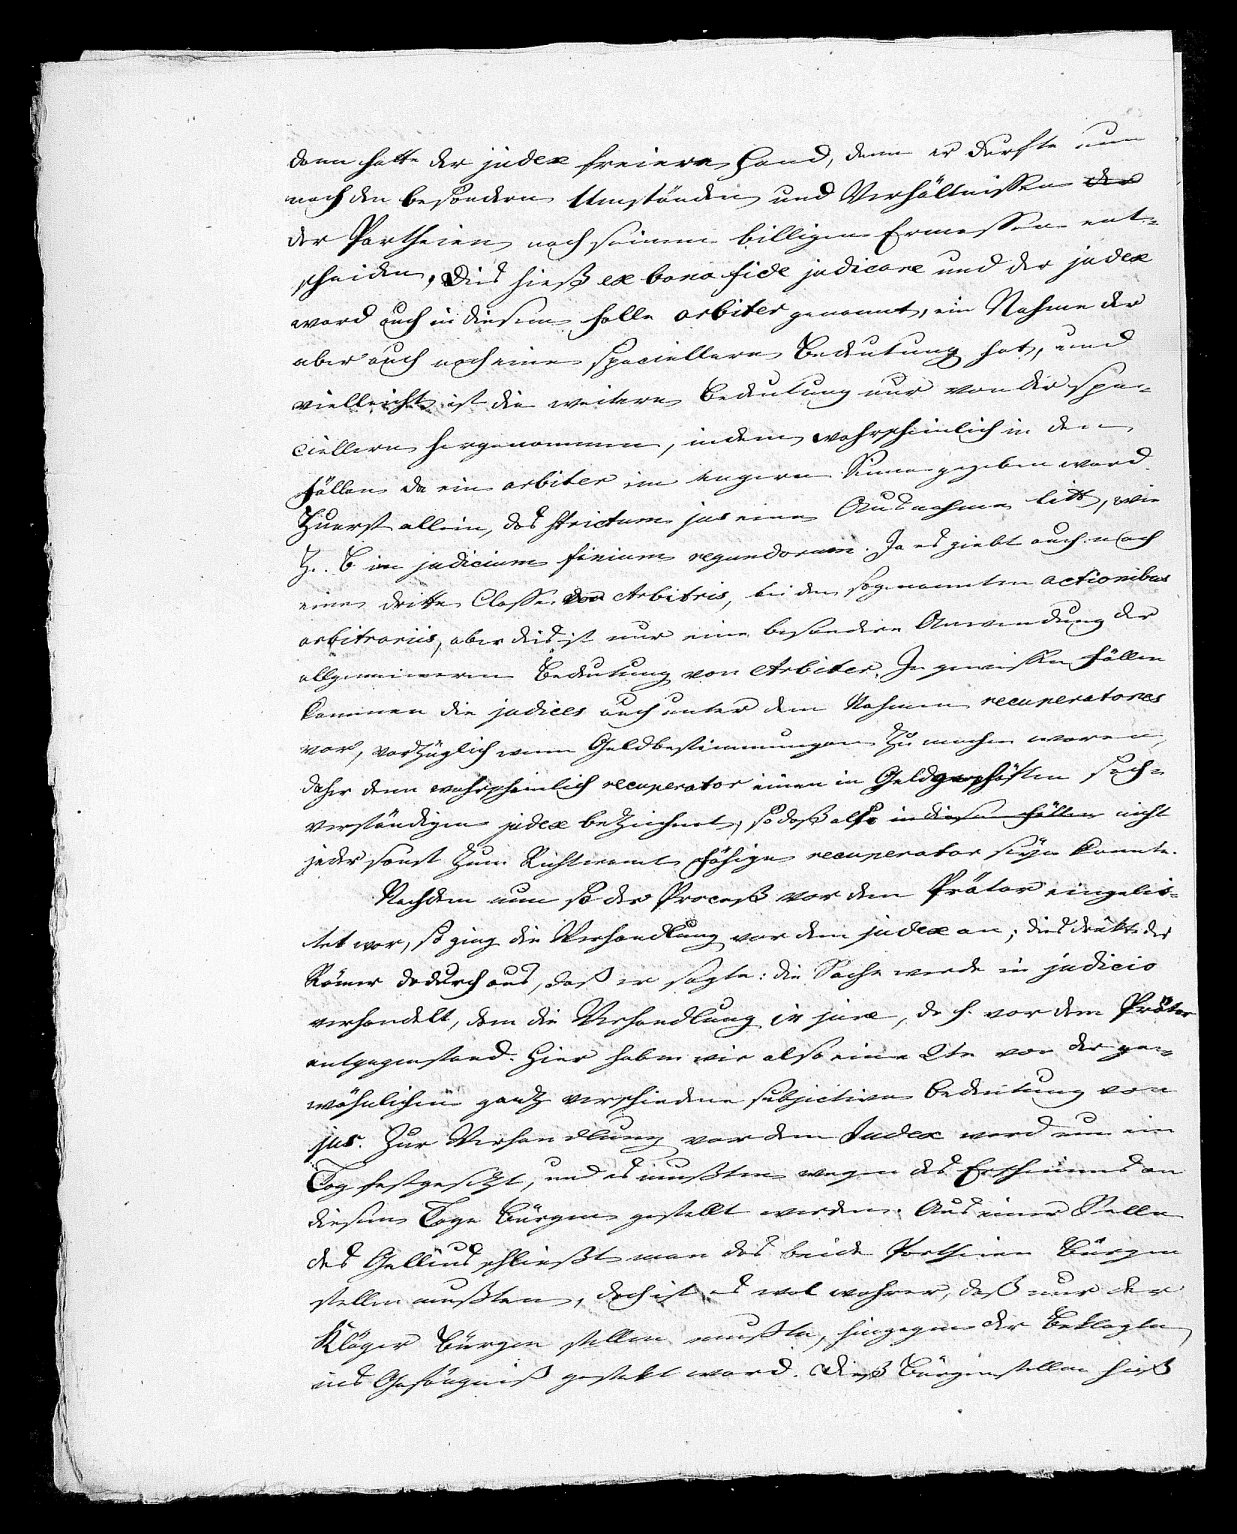 dann hatte der judex freiere Hand, denn er durfte nun
nach den besondern Umständen und Verhältnissen der
der Partheien nach seinem billigen Ermessen ent-
scheiden. Dies hieß ex bona fide judicare und der judex
ward auch in diesem Falle arbiter genannt, ein Nahme der
aber auch noch eine speciellere Bedeutung hat, und
vielleicht ist die weitere Bedeutung nur von der spe-
ciellern hergenommen, indem wahrscheinlich in den
Fällen da ein arbiter im engern Sinne gegeben ward
Zuerst allein, das strictum jus eine Ausnahme litt, wie
z. B im judicium finium regundorum. Ja es giebt auch noch
eine dritte Classe von Arbitris, bei den sogenannten actionibus
arbitrariis, aber dies ist nur eine besondere Anwendung der
allgemeineren Bedeutung von Arbiter. In gewissen Fällen
kommen die judices auch unter dem Nahmen recuperatores
vor, vorzüglich wenn Geldbestimmungen zu machen waren,
daher denn wahrscheinlich recuperator einen in Geldgeschäften sach-
verständigen judex bezeichnet, so daß also in diesen Fällen nicht
jeder sonst zum Richteramt fähige recuperator seyn konnte.
Nachdem nun so der Proceß vor dem Prätor eingelei-
tet war, so ging die Verhandlung vor dem judex an; dies drükte der
Römer dadurch aus, daß er sagte: die Sache werde in judicio
verhandelt, dem die Verhandlung in jure, d. h. vor dem Prätor
entgegenstand. Hier haben wir also eine 2te von der ge-
wöhnlichen ganz verschiedene subjective Bedeutung von
jus. Zur Verhandlung vor dem Judex ward nun ein
Tag festgesezt, und es mußten wegen des Erscheinens an
diesem Tage Bürgen gestellt werden. Aus einer Stelle
des Gellius schließt man das beide Partheien Bürgen
stellen mußten, doch ist es wol wahrer, daß nur der
Kläger Bürgen stellen mußte, hingegen der Beklagte
ins Gefängniß gestekt ward. Dieß Bürgenstellen hieß